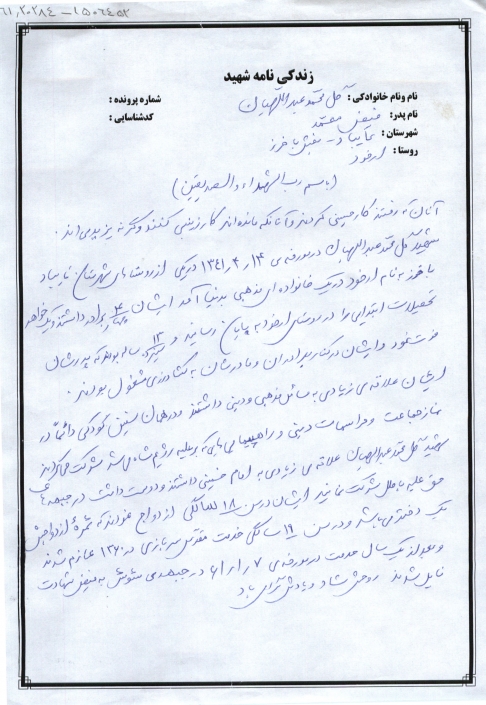 ۶۱,۲۰۲۸۴ - ۱۵۰۶۴۵۲
زندگی نامه شهید
نام ونام خانوادگی : گل محمد عبداللهیان
شماره پرونده :
نام پدر: فیض محمد
کدشناسایی :
شهرستان : تایباد - بخش باخرز
روستا : ارخود
(باسم رب الشهداء والصدیقین)
آنان که رفتند کار حسینی کردند و آنانکه مانده اند کار زینبی کنند وگرنه یزیدی اند .
شهید گل محمد عبداللهیان در مورخه ی ۱۴ ر ۴ ر ۱۳۴۱ در یکی از روستاهای شهرستان تایباد
باخرز به نام ارخود در یک خانواده ای مذهبی بدنیا آمد ایشان ۴ برادر داشتند و یک خواهر
تحصیلات ابتدایی را در روستای ارخود به پایان رسانید و ۱۳ ساله بودند که پدرشان
فوت نمود و ایشان در کنار برادران و مادرشان به کشاورزی مشغول بودند .
ایشان علاقه ی زیادی به مسائل مذهبی و دینی داشتند و در همان سنین کودکی دائماً در
نماز جماعت و مراسمات دینی و راهپیمایی هایی که بر علیه رژیم شاه می شد شرکت می کردند
شهید گل محمد عبداللهیان علاقه ی زیادی به امام خمینی داشتند و دوست داشت در جبهه های
حق علیه باطل شرکت نمایند ایشان در سن ۱۸ سالگی ازدواج نمودند که ثمرهٔ ازدواجش
یک دختر می باشد و در سن ۱۹ سالگی خدمت مقدس سربازی در ۱۳۶۰ عازم شدند
و بعد از یک سال خدمت در مورخه ی ۷ ر ۱ ر ۶۱ در جبهه ی شوش به فیض شهادت
نایل شدند روحش شاد و یادش گرامی باد